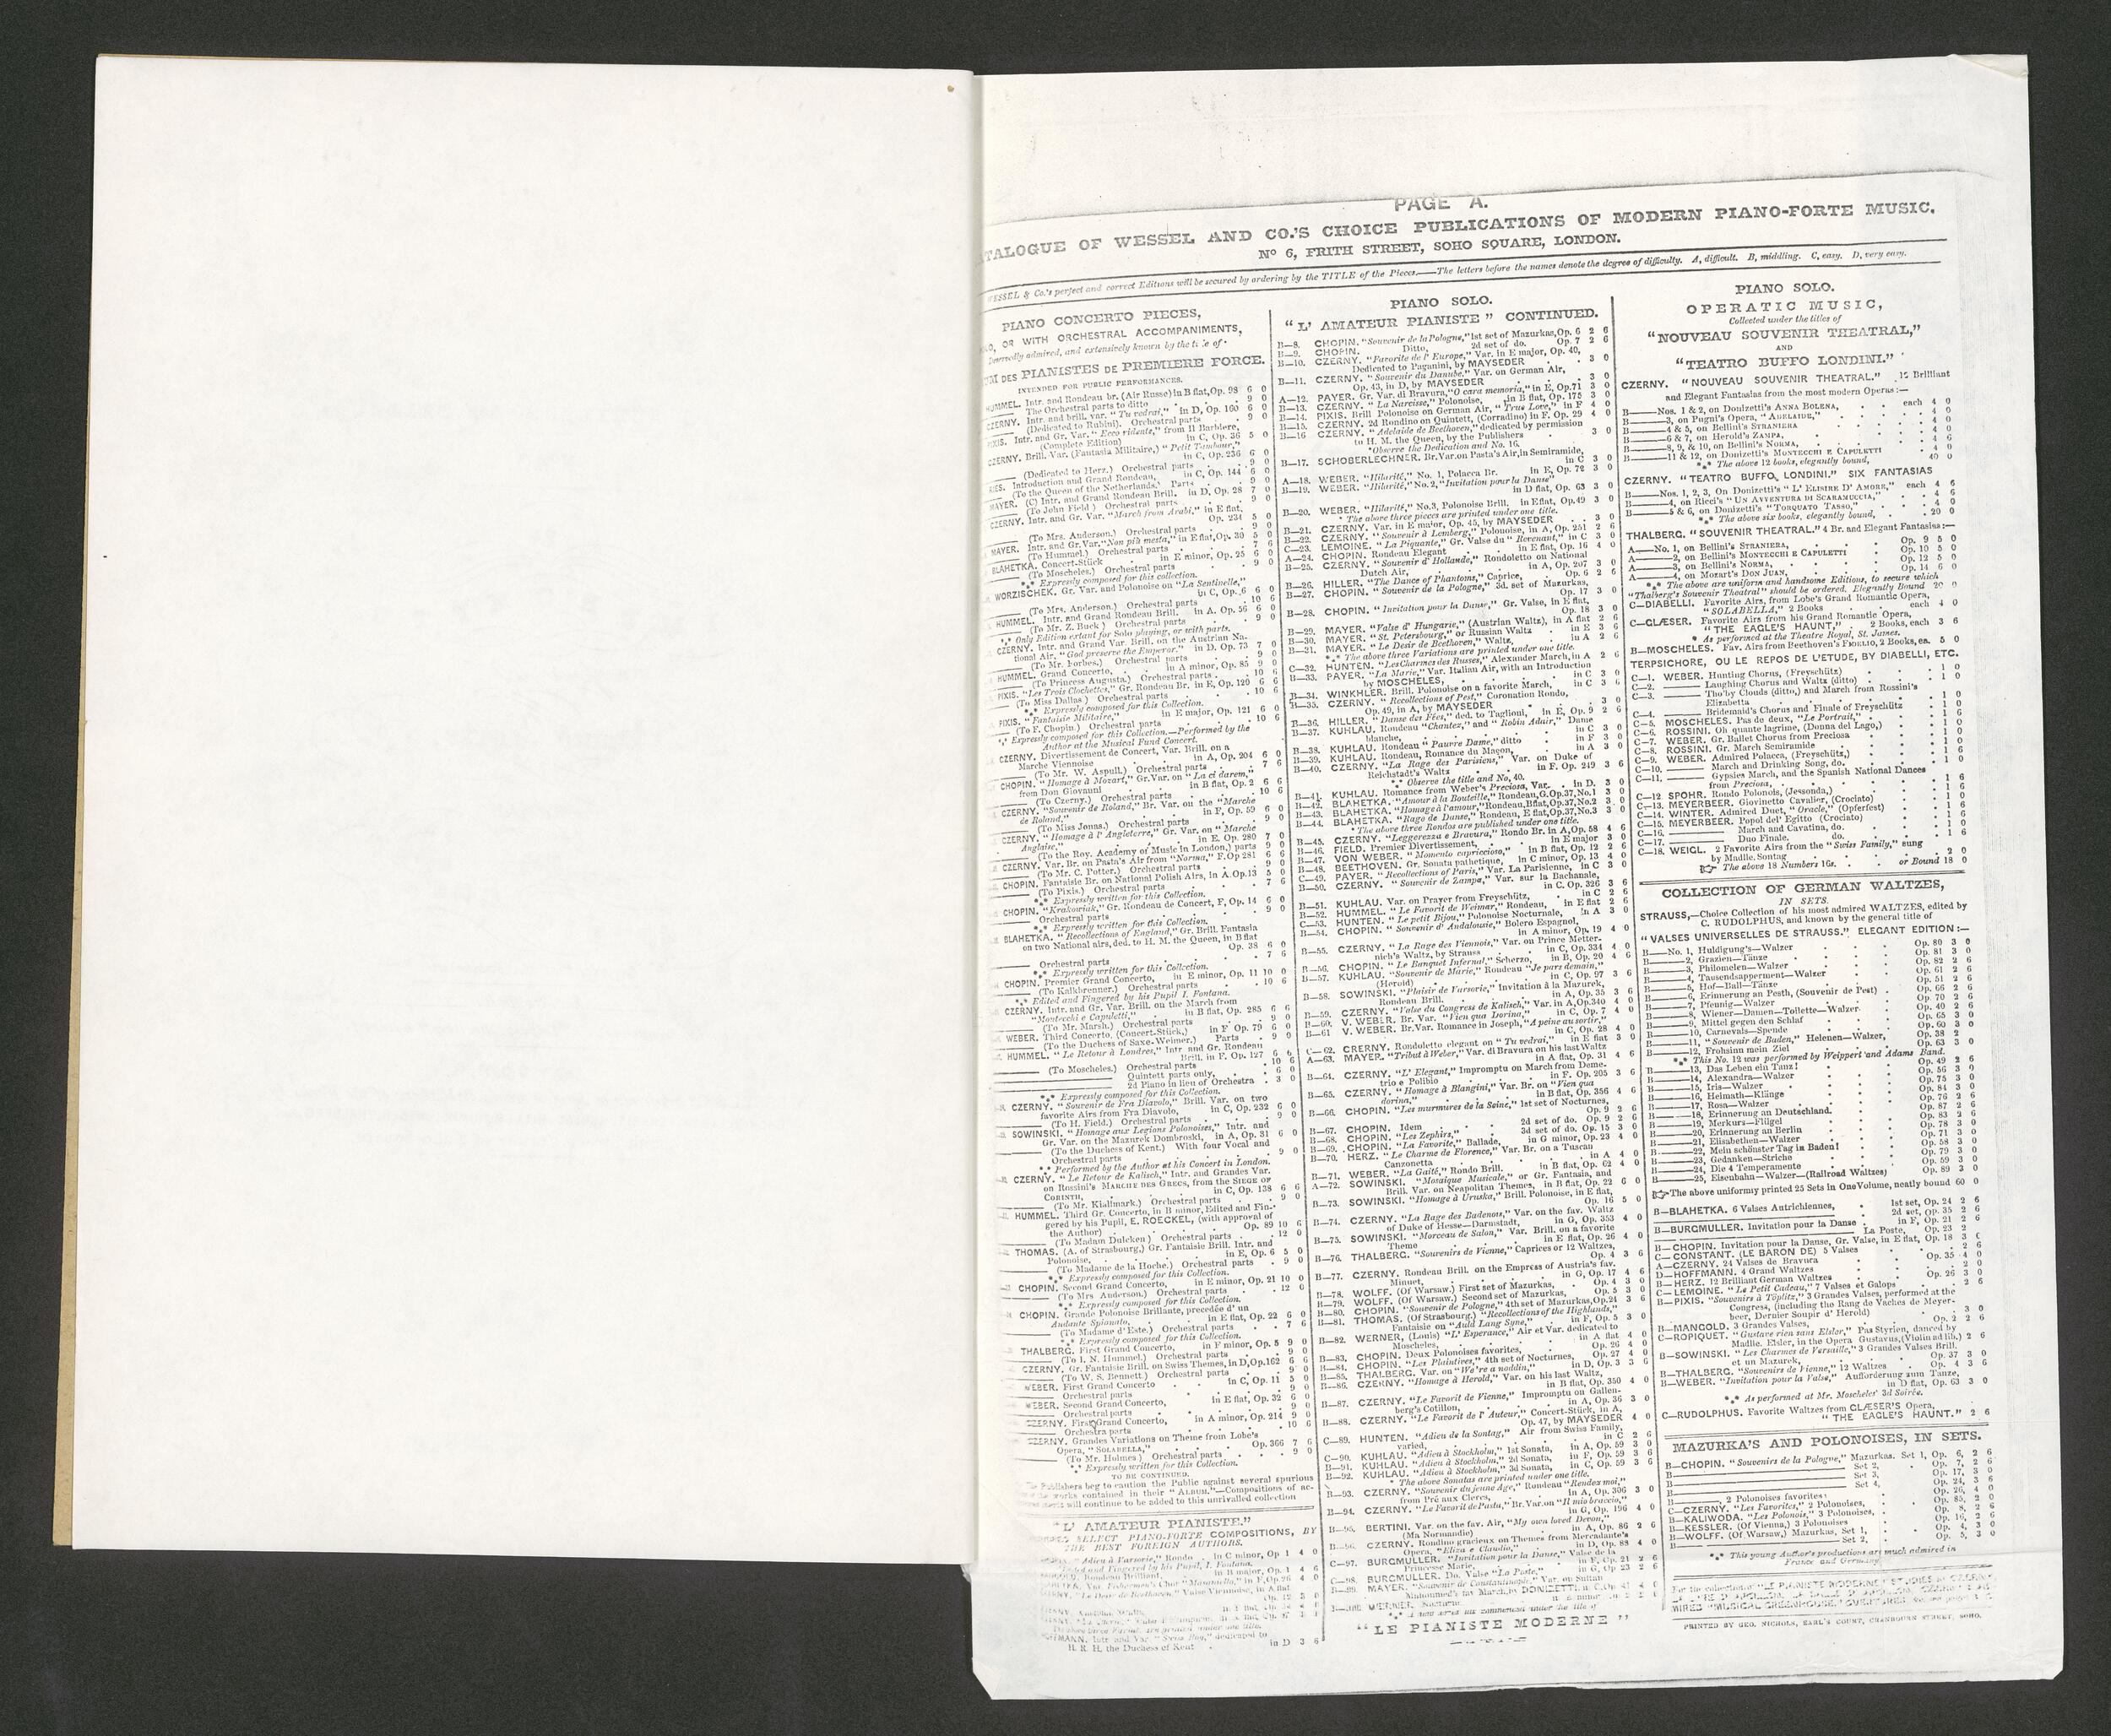 PAGE A.
TALOGUE OF WESSEL AND CO.'S CHOICE PUBLICATIONS OF MODERN PIANO-FORTE MUSIC.
No 6, FRITH STREET, SOHO SQUARE, LONDON.
WESSEL & Co.'s perfect and correct Editions will be secured by ordering by the TITLE of the Pieces.—The letters before the names denote the degree of difficulty. A, difficult. B, middling. C, easy. D, very easy.
PIANO CONCERTO PIECES,
OR WITH ORCHESTRAL ACCOMPANIMENTS,
Deservedly admired, and extensively known by the title of
DES PIANISTES DE PREMIERE FORCE.
INTENDED FOR PUBLIC PERFORMANCES.
HUMMEL. Intr. and Rondeau br. (Air Russe) in B flat, Op. 98 6 0
The Orchestral parts to ditto 9 0
CZERNY. Intr. and brill. var. "Tu vedrai," in D, Op. 160 6 0
(Dedicated to Rubini). Orchestral parts 9 0
PIXIS. Intr. and Gr. Var. "Ecco ridente," from Il Barbiere,
(Complete Edition) in C, Op. 36 5 0
CZERNY. Brill. Var. (Fantasia Militaire,) "Petit Tambour,"
in C, Op. 236 6 0
(Dedicated to Herz.) Orchestral parts 9 0
RIES. Introduction and Grand Rondeau, in C, Op. 144 6 0
(To the Queen of the Netherlands.) Parts 9 0
MAYER. (C) Intr. and Grand Rondeau Brill. in D, Op. 28 7 0
(To John Field) Orchestral parts 9 0
CZERNY. Intr. and Gr. Var. "March from Arabi," in E flat,
Op. 234 5 0
(To Mrs. Anderson.) Orchestral parts 9 0
MAYER. Intr. and Gr. Var. "Non più mesta," in E flat, Op. 30 5 0
(To Hummel.) Orchestral parts 7 6
BLAHETKA. Concert-Stück in E minor, Op. 25 6 0
(To Moscheles.) Orchestral parts 9 0
*** Expressly composed for this collection.
WORZISCHEK. Gr. Var. and Polonoise on "La Sentinelle,"
in C, Op. 6 6 0
(To Mrs. Anderson.) Orchestral parts 10 6
HUMMEL. Intr. and Grand Rondeau Brill. in A. Op. 56 6 0
(To Mr. Z. Buck) Orchestral parts 9 0
*** Only Edition extant for Solo playing, or with parts.
CZERNY. Intr. and Grand Var. Brill. on the Austrian Na-
tional Air, "God preserve the Emperor." in D. Op. 73 7 0
(To Mr. Forbes.) Orchestral parts 9 0
HUMMEL. Grand Concerto, in A minor, Op. 85 9 0
(To Princess Augusta.) Orchestral parts 10 6
PIXIS. "Les Trois Clochettes," Gr. Rondeau Br. in E, Op. 120 6 6
(To Miss Dallas) Orchestral parts 10 6
*** Expressly composed for this Collection.
PIXIS. "Fantaisie Militaire," in E major, Op. 121 6 0
(To F. Chopin.) Orchestral parts 10 6
*** Expressly composed for this Collection.—Performed by the
Author at the Musical Fund Concert.
CZERNY. Divertissement de Concert, Var. Brill. on a
Marche Viennoise in A, Op. 204 6 0
(To Mr. W. Aspull.) Orchestral parts 7 6
CHOPIN. "Homage à Mozart," Gr. Var. on "La ci darem,"
from Don Giovanni in B flat, Op. 2 6 6
(To Czerny.) Orchestral parts 10 6
CZERNY. "Souvenir de Roland," Br. Var. on the "Marche
de Roland," in F, Op. 59 6 0
(To Miss Jonas.) Orchestral parts 9 0
CZERNY. "Homage à l'Angleterre," Gr. Var. on "Marche
Anglaise," in E. Op. 280 7 0
(To the Roy. Academy of Music in London,) parts 9 0
CZERNY. Var. Br. on Pasta's Air from "Norma," F. Op 281 6 6
(To Mr. C. Potter.) Orchestral parts 9 0
CHOPIN. Fantaisie Br. on National Polish Airs, in A. Op. 13 5 0
(To Pixis.) Orchestral parts 7 6
*** Expressly written for this Collection.
CHOPIN. "Krakowiak," Gr. Rondeau de Concert, F, Op. 14 6 0
Orchestral parts 9 0
*** Expressly written for this Collection.
BLAHETKA. "Recollections of England," Gr. Brill. Fantasia
on two National airs, ded. to H. M. the Queen, in B flat
Op. 38 6 0
Orchestral parts 7 6
*** Expressly written for this Collection.
CHOPIN. Premier Grand Concerto, in E minor, Op. 11 10 0
(To Kalkbrenner.) Orchestral parts 10 6
*** Edited and Fingered by his Pupil I. Fontana.
CZERNY. Intr. and Gr. Var. Brill. on the March from
"Montecchi e Capuletti," in B flat, Op. 285 6 6
(To Mr. Marsh.) Orchestral parts 9 0
WEBER. Third Concerto, (Concert-Stück,) in F Op. 79 6 0
(To the Duchess of Saxe-Weimer.) Parts 9 0
HUMMEL. "Le Retour à Londres," Intr. and Gr. Rondeau
Brill. in F. Op. 127 6 6
(To Moscheles.) Orchestral parts 10 6
Quintett parts only, 6 0
2d Piano in lieu of Orchestra 3 0
*** Expressly composed for this Collection.
CZERNY. "Souvenir de Fra Diavolo," Brill. Var. on two
favorite Airs from Fra Diavolo, in C, Op. 232 6 0
(To H. Field.) Orchestral parts 9 0
SOWINSKI. "Homage aux Legions Polonoises," Intr. and
Gr. Var. on the Mazurek Dombroski, in A, Op. 31 6 0
(To the Duchess of Kent.) With four Vocal and
Orchestral parts 9 0
*** Performed by the Author at his Concert in London.
CZERNY. "Le Retour de Kalisch," Intr. and Grandes Var.
on Rossini's MARCHE DES GRECS, from the SIEGE OF
CORINTH, in C, Op. 138 6 6
(To Mr. Kiallmark.) Orchestral parts 9 0
HUMMEL. Third Gr. Concerto, in B minor, Edited and Fin-
gered by his Pupil, E. ROECKEL, (with approval of
the Author) Op. 89 10 6
(To Madam Dulcken) Orchestral parts 12 0
THOMAS. (A. of Strasbourg,) Gr. Fantaisie Brill. Intr. and
Polonoise, in E, Op. 6 5 0
(To Madame de la Hoche.) Orchestral parts 9 0
*** Expressly composed for this Collection.
CHOPIN. Second Grand Concerto, in E minor, Op. 21 10 0
(To Mrs Anderson.) Orchestral parts 12 0
*** Expressly composed for this Collection.
CHOPIN. Grande Polonoise Brillante, precedée d' un
Andante Spianato, in E flat, Op. 22 6 0
(To Madame d'Este.) Orchestral parts 7 6
*** Expressly composed for this Collection.
THALBERG. First Grand Concerto, in F minor, Op. 5 9 0
(To I. N. Hummel.) Orchestral parts 9 0
CZERNY. Gr. Fantasie Brill. on Swiss Themes, in D, Op. 162 6 6
(To W. S. Bennett.) Orchestral parts 9 0
WEBER. First Grand Concerto in C, Op. 11 5 0
Orchestral parts 9 0
WEBER. Second Grand Concerto, in E flat, Op. 32 6 0
Orchestral parts 9 0
CZERNY. First Grand Concerto, in A minor, Op. 214 9 0
Orchestra parts 10 6
CZERNY. Grandes Variations on Theme from Lobe's
Opera, "SOLABELLA," Op. 366 7 6
(To Mr. Holmes) Orchestral parts 9 0
*** Expressly written for this Collection.
TO BE CONTINUED.
Publishers beg to caution the Public against several spurious
works contained in their "ALBUM."—Compositions of ac-
will continue to be added to this unrivalled collection
"L' AMATEUR PIANISTE."
SELECT PIANO-FORTE COMPOSITIONS, BY
THE BEST FOREIGN AUTHORS.
"Adieu à Varsovie," Rondo in C minor, Op 1 4 0
and Fingered by his Pupil, I. Fontana.
Rondeau Brilliant, in B major, Op. 1 4 6
Var. Fishermen's Chor "Masaniello," in F, Op. 26 4 0
"Le Desir de Beethoven," Valse Viennoise, in A flat
HOFFMANN. Intr and Var "Swiss Boy," dedicated to
H. R. H. the Duchess of Kent in D 3 6
PIANO SOLO.
"L' AMATEUR PIANISTE" CONTINUED.
B—8. CHOPIN. "Souvenir de la Pologne," 1st set of Mazurkas, Op. 6 2 6
B—9. CHOPIN. Ditto, 2d set of do. Op. 7 2 6
B—10. CZERNY. "Favorite de l' Europe," Var. in E major, Op. 40,
Dedicated to Paganini, by MAYSEDER 3 0
B—11. CZERNY. "Souvenir du Danube," Var. on German Air,
Op. 43, in D, by MAYSEDER 3 0
A—12. PAYER. Gr. Var. di Bravura, "O cara memoria," in E, Op. 71 3 0
B—13. CZERNY. "La Narcisse," Polonoise, in B flat, Op. 175 3 0
B—14. PIXIS. Brill Polonoise on German Air, "True Love," in F 4 0
B—15. CZERNY. 2d Rondino on Quintett, (Corradino) in F. Op. 29 4 0
B—16 CZERNY. "Adelaide de Beethoven," dedicated by permission
to H. M. the Queen, by the Publishers 3 0
*Observe the Dedication and No. 16.
B—17. SCHOBERLECHNER. Br. Var. on Pasta's Air, in Semiramide,
in C 3 0
A—18. WEBER. "Hilarité," No. 1, Polacca Br. in E, Op. 72 3 0
B—19. WEBER. "Hilarité," No. 2, "Invitation pour la Danse"
in D flat, Op. 63 3 0
B—20. WEBER. "Hilarité," No. 3, Polonoise Brill. in E flat, Op. 49 3 0
* The above three pieces are printed under one title.
B—21. CZERNY. Var. in E major, Op. 45, by MAYSEDER 3 0
B—22. CZERNY. "Souvenir à Lemberg," Polonoise, in A, Op. 251 2 6
C—23. LEMOINE. "La Piquante," Gr. Valse du "Revenant," in C 3 0
A—24. CHOPIN. Rondeau Elegant in E flat, Op. 16 4 0
B—25. CZERNY. "Souvenir d' Hollande," Rondoletto on National
Dutch Air, in A, Op. 207 3 0
B—26. HILLER. "The Dance of Phantoms," Caprice, Op. 6 2 6
B—27. CHOPIN. "Souvenir de la Pologne," 3d. set of Mazurkas,
Op. 17 3 0
B—28. CHOPIN. "Invitation pour la Danse," Gr. Valse, in E flat,
Op. 18 3 0
B—29. MAYER. "Valse d' Hungarie," (Austrian Waltz), in A flat 2 6
B—30. MAYER. "St. Petersbourg," or Russian Waltz in E 3 6
B—31. MAYER. "Le Desir de Beethoven," Waltz, in A 2 6
*** The above three Variations are printed under one title.
C—32. HUNTEN. "Les Charmes des Russes," Alexander March, in A 2 6
B—33. PAYER. "La Marie," Var. Italian Air, with an Introduction
by MOSCHELES, in C 3 0
B—34. WINKHLER. Brill. Polonoise on a favorite March, in C 3 6
B—35. CZERNY. "Recollections of Pest," Coronation Rondo,
Op. 49, in A, by MAYSEDER 3 0
B—36. HILLER. "Danse des Fées," ded. to Taglioni, in E, Op. 9 2 6
B—37. KUHLAU. Rondeau "Chantez," and "Robin Adair," Dame
blanche, in C 3 0
B—38. KUHLAU. Rondeau "Pauvre Dame," ditto in F 3 0
B—39. KUHLAU. Rondeau, Romance du Maçon, in A 3 0
B—40. CZERNY. "La Rage des Parisiens," Var. on Duke of
Reichstadt's Waltz in F. Op. 249 3 6
*** Observe the title and No. 40.
B—41. KUHLAU. Romance from Weber's Preciosa, Var. in D. 3 0
B—42. BLAHETKA. "Amour à la Bouteille," Rondeau, G. Op. 37, No. 1 3 0
B—43. BLAHETKA. "Homage à l'amour," Rondeau, B flat, Op. 37, No. 2 3 0
B—44. BLAHETKA. "Rage de Danse," Rondeau, E flat, Op. 37, No. 3 3 0
* The above three Rondos are published under one title.
B—45. CZERNY. "Leggerezza e Bravura," Rondo Br. in A, Op. 58 4 6
B—46. FIELD. Premier Divertissement, in E major 3 0
B—47. VON WEBER. "Momento capriccioso," in B flat, Op. 12 2 6
B—48. BEETHOVEN. Gr. Sonata pathetique, in C minor, Op. 13 4 0
C—49. PAYER. "Recollections of Paris," Var. La Parisienne, in C 3 0
B—50. CZERNY. "Souvenir de Zampa," Var. sur la Bachanale,
in C. Op. 326 3 6
B—51. KUHLAU. Var. on Prayer from Freyschütz, in C 2 6
B—52. HUMMEL. "Le Favorit de Weimar," Rondeau, in E flat 2 6
C—53. HUNTEN. "Le petit Bijou," Polonoise Nocturnale, in A 3 0
B—54. CHOPIN. "Souvenir d' Andalousie," Bolero Espagnol,
in A minor, Op. 19 4 0
B—55. CZERNY. "La Rage des Viennois," Var. on Prince Metter-
nich's Waltz, by Strauss in C, Op. 334 4 0
B—56. CHOPIN. "Le Banquet Infernal," Scherzo, in B, Op. 20 4 6
B—57. KUHLAU. "Souvenir de Marie," Rondeau "Je pars demain,"
(Herold) in C, Op. 97 3 6
B—58. SOWINSKI. "Plaisir de Varsovie," Invitation à la Mazurek,
Rondeau Brill. in A, Op. 35 3 6
B—59. CZERNY. "Valse du Congress de Kalisch," Var. in A, Op. 340 4 0
B—60. V. WEBER. Br. Var. "Vien qua Dorina," in C, Op. 7 4 0
B—61 V. WEBER. Br. Var. Romance in Joseph, "A peine au sortir,"
in C, Op. 28 4 0
C—62. CRERNY. Rondoletto elegant on "Tu vedrai," in E flat 3 0
A—63. MAYER. "Tribut à Weber," Var. di Bravura on his last Waltz
in A flat, Op. 31 4 6
B—64. CZERNY. "L' Elegant," Impromptu on March from Deme-
trio e Polibio in F. Op. 205 3 6
B—65. CZERNY. "Homage à Blangini," Var. Br. on "Vien qua
dorina," in B flat, Op. 356 4 6
B—66. CHOPIN. "Les murmures de la Seine," 1st set of Nocturnes,
Op. 9 2 6
B—67. CHOPIN. Idem 2d set of do. Op. 9 2 6
B—68. CHOPIN. "Les Zephirs," 3d set of do. Op. 15 3 0
B—69. CHOPIN. "La Favorite," Ballade, in G minor, Op. 23 4 0
B—70. HERZ. "Le Charme de Florence," Var. Br. on a Tuscan
Canzonetta in A 4 0
B—71. WEBER. "La Gaité," Rondo Brill. in B flat, Op. 62 4 0
A—72. SOWINSKI. "Mosaique Musicale," or Gr. Fantasia, and
Brill. Var. on Neapolitan Themes, in B flat, Op. 22 6 0
B—73. SOWINSKI. "Homage à Uruska," Brill. Polonoise, in E flat,
Op. 16 5 0
B—74. CZERNY. "La Rage des Badenois," Var. on the fav. Waltz
of Duke of Hesse—Darmstadt, in G, Op. 353 4 0
B—75. SOWINSKI. "Morceau de Salon," Var. Brill. on a favorite
Theme in E flat, Op. 26 4 0
B—76. THALBERG. "Souvenirs de Vienne," Caprices or 12 Waltzes,
Op. 4 3 6
B—77. CZERNY. Rondeau Brill. on the Empress of Austria's fav.
Minuet, in G, Op. 17 4 6
B—78. WOLFF. (Of Warsaw.) First set of Mazurkas, Op. 4 3 0
B—79. WOLFF. (Of Warsaw.) Second set of Mazurkas, Op. 5 3 0
B—80. CHOPIN. "Souvenir de Pologne," 4th set of Mazurkas, Op. 24 3 6
B—81. THOMAS. (Of Strasbourg.) "Recollections of the Highlands,"
Fantaisie on "Auld Lang Syne," in F, Op. 5 3 0
B—82. WERNER, (Louis) "L' Esperance," Air et Var. dedicated to
Moscheles, in A flat 4 0
B—83. CHOPIN. Deux Polonoises favorites, Op. 26 4 0
B—84. CHOPIN. "Les Plaintives," 4th set of Nocturnes, Op. 27 4 0
B—85. THALBERG. Var. on "We're a noddin," in D, Op. 3 3 6
B—86. CZERNY. "Homage à Herold," Var. on his last Waltz,
in B flat, Op. 350 4 0
B—87. CZERNY. "Le Favorit de Vienne," Impromptu on Gallen-
berg's Cotillon, in A, Op. 36 3 0
B—88. CZERNY. "Le Favorit de l' Auteur," Concert-Stück, in A,
Op. 47, by MAYSEDER 4 0
C—89. HUNTEN. "Adieu de la Sontag," Air from Swiss Family,
varied, in C 2 6
C—90. KUHLAU. "Adieu à Stockholm," 1st Sonata, in A, Op. 59 3 0
B—91. KUHLAU. "Adieu à Stockholm," 2d Sonata, in F, Op. 59 3 6
B—92. KUHLAU. "Adieu à Stockholm," 3d Sonata, in C, Op. 59 3 6
* The above Sonatas are printed under one title.
B—93. CZERNY. "Souvenir du jeune Age," Rondeau "Rendez moi,"
from Pré aux Clercs, in A, Op. 306 3 0
B—94. CZERNY. "Le Favorit de Pasta," Br. Var. on "Il mio braccio,"
in G, Op. 196 4 0
B—95. BERTINI. Var. on the fav. Air, "My own loved Devon,"
(Ma Normandie) in A, Op. 86 2 6
B—96. CZERNY. Rondino gracieux on Themes from Mercadante's
Opera, "Eliza e Claudio," in D, Op. 88 4 0
C—97. BURGMULLER. "Invitation pour la Danse," Valse de la
Princesse Marie, in F, Op. 21 2 6
C—98. BURGMULLER. Do. Valse "La Poste," in G, Op. 23 2 6
B—99. MAYER. "Souvenir de Constantinople," Var. on Sultan
Mahommed's fav March, by DONIZETTI,
B—100 WERNER. Nocturne
"LE PIANISTE MODERNE"
PIANO SOLO.
OPERATIC MUSIC,
Collected under the titles of
"NOUVEAU SOUVENIR THEATRAL,"
AND
"TEATRO BUFFO LONDINI."
CZERNY. "NOUVEAU SOUVENIR THEATRAL." 12 Brilliant
and Elegant Fantasias from the most modern Operas:—
B—Nos. 1 & 2, on Donizetti's ANNA BOLENA, each 4 0
B—3, on Pugni's Opera, "ADELAIDE," 4 0
B—4 & 5, on Bellini's STRANIERA 4 0
B—6 & 7, on Herold's ZAMPA, 4 6
B—8, 9, & 10, on Bellini's NORMA, 4 6
B—11 & 12, on Donizetti's MONTECCHI E CAPULETTI 4 0
*** The above 12 books, elegantly bound, 40 0
CZERNY. "TEATRO BUFFO LONDINI." SIX FANTASIAS
B—Nos. 1, 2, 3, On Donizetti's "L' ELISIRE D' AMORE," each 4 6
B—4, on Ricci's "UN AVVENTURA DI SCARAMUCCIA," 4 6
B—5 & 6, on Donizetti's "TORQUATO TASSO," 4 0
*** The above six books, elegantly bound, 20 0
THALBERG. "SOUVENIR THEATRAL." 4 Br. and Elegant Fantasias:—
A—No. 1, on Bellini's STRANIERA, Op. 9 5 0
A—2, on Bellini's MONTECCHI E CAPULETTI Op. 10 5 0
A—3, on Bellini's NORMA, Op. 12 5 0
A—4, on Mozart's DON JUAN, Op. 14 6 0
*** The above are uniform and handsome Editions, to secure which
"Thalberg's Souvenir Theatral" should be ordered. Elegantly Bound 20 0
C—DIABELLI. Favorite Airs, from Lobe's Grand Romantic Opera,
"SOLABELLA," 2 Books each 4 0
C—GLÆSER. Favorite Airs from his Grand Romantic Opera,
"THE EAGLE'S HAUNT," 2 Books, each 3 6
* As performed at the Theatre Royal, St. James.
B—MOSCHELES. Fav. Airs from Beethoven's FIDELIO, 2 Books, ea. 5 0
TERPSICHORE, OU LE REPOS DE L'ETUDE, BY DIABELLI, ETC.
C—1. WEBER. Hunting Chorus, (Freyschütz) 1 0
C—2. Laughing Chorus and Waltz (ditto) 1 0
C—3. Tho'by Clouds (ditto,) and March from Rossini's
Elizabetta 1 0
C—4. Bridemaid's Chorus and Finale of Freyschütz 1 0
C—5. MOSCHELES. Pas de deux, "Le Portrait," 1 6
C—6. ROSSINI. Oh quante lagrime, (Donna del Lago,) 1 0
C—7. WEBER. Gr. Ballet Chorus from Preciosa 1 0
C—8. ROSSINI. Gr. March Semiramide 1 0
C—9. WEBER. Admired Polacca, (Freyschütz,) 1 6
C—10. March and Drinking Song, do. 1 0
C—11. Gypsies March, and the Spanish National Dances
from Preciosa, 1 6
C—12. SPOHR. Rondo Polonois, (Jessonda,) 1 6
C—13. MEYERBEER. Giovinetto Cavalier, (Crociato) 1 0
C—14. WINTER. Admired Duet, "Oracle," (Opferfest) 1 6
C—15. MEYERBEER. Popol del' Egitto (Crociato) 1 0
C—16. March and Cavatina, do. 1 0
C—17. Duo Finale. do. 1 6
C—18. WEIGL. 2 Favorite Airs from the "Swiss Family," sung
by Madlle. Sontag 2 0
☞ The above 18 Numbers 16s. or Bound 18 0
COLLECTION OF GERMAN WALTZES,
IN SETS.
STRAUSS,—Choice Collection of his most admired WALTZES, edited by
C. RUDOLPHUS, and known by the general title of
"VALSES UNIVERSELLES DE STRAUSS." ELEGANT EDITION:—
B—No. 1, Huldigung's—Walzer Op. 80 3 0
B—2, Grazien—Tänze Op. 81 3 0
B—3, Philomelen—Walzer Op. 82 2 6
B—4, Tausendsapperment—Walzer Op. 61 2 6
B—5, Hof—Ball—Tänze Op. 51 2 6
B—6, Erinnerung an Pesth, (Souvenir de Pest) Op. 66 2 6
B—7, Pfennig—Walzer Op. 70 2 6
B—8, Wiener—Damen—Tollette—Walzer Op. 40 2 6
B—9, Mittel gegen den Schlaf Op. 65 3 0
B—10, Carnevals—Spende Op. 60 3 0
B—11, "Souvenir de Baden," Helenen—Walzer, Op. 38 2
B—12, Frohsinn mein Ziel Op. 63 3 0
*** This No. 12 was performed by Weippert and Adams Band.
B—13, Das Leben ein Tanz! Op. 49 2 6
B—14, Alexandra—Walzer Op. 56 3 0
B—15, Iris—Walzer Op. 75 3 0
B—16, Heimath—Klänge Op. 84 3 0
B—17, Rosa—Walzer Op. 76 2 6
B—18, Erinnerung an Deutschland. Op. 87 2 6
B—19, Merkurs—Flügel Op. 83 2 6
B—20, Erinnerung an Berlin Op. 78 3 0
B—21, Elisabethen—Walzer Op. 71 3 0
B—22, Mein schönster Tag in Baden! Op. 58 3 0
B—23, Gedanken—Striche Op. 79 3 0
B—24, Die 4 Temperamente Op. 59 3 0
B—25, Eisenbahn—Walzer—(Railroad Waltzes) Op. 89 3 0
☞ The above uniformly printed 25 Sets in One Volume, neatly bound 60 0
B—BLAHETKA. 6 Valses Autrichiennes, 1st set, Op. 24 2 6
2d set, Op. 35 2 6
B—BURGMULLER. Invitation pour la Danse in F, Op. 21 2 6
La Poste, Op. 23 2
B—CHOPIN. Invitation pour la Danse, Gr. Valse, in E flat, Op. 18 3 0
C—CONSTANT. (LE BARON DE) 5 Valses 2 6
A—CZERNY. 24 Valses de Bravura Op. 35 4 0
D—HOFFMANN. 4 Grand Waltzes 2 0
B—HERZ. 12 Brilliant German Waltzes Op. 26 3 0
C—LEMOINE. "Le Petit Cadeau," 7 Valses et Galops 2 6
B—PIXIS. "Souvenirs à Töplitz," 3 Grandes Valses, performed at the
Congress, (including the Rang de Vaches de Meyer-
beer, Dernier Soupir d' Herold) 3 0
B—MANGOLD. 3 Grandes Valses, Op. 2 2 6
C—ROPIQUET. "Gustave rien sans Elsler," Pas Styrien, danced by
Madlle. Elsler, in the Opera Gustavus, (Violin ad lib.) 2 6
B—SOWINSKI. "Les Charmes de Versaille," 3 Grandes Valses Brill.
et un Mazurek, Op. 37 3 0
B—THALBERG. "Souvenirs de Vienne," 12 Waltzes Op. 4 3 6
B—WEBER. "Invitation pour la Valse," Aufforderung zum Tanze,
in D flat, Op. 63 3 0
*** As performed at Mr. Moscheles' 3d Soirée.
C—RUDOLPHUS. Favorite Waltzes from GLÆSER'S Opera,
"THE EAGLE'S HAUNT." 2 6
MAZURKA'S AND POLONOISES, IN SETS.
B—CHOPIN. "Souvenirs de la Pologne," Mazurkas. Set 1, Op. 6, 2 6
B— Set 2, Op. 7, 2 6
B— Set 3, Op. 17, 3 0
B— Set 4, Op. 24, 3 6
B— 2 Polonoises favorites: Op. 26, 4 0
C—CZERNY. "Les Favorites," 2 Polonoises, Op. 85, 2 0
B—KALIWODA. "Les Polonois," 3 Polonoises, Op. 8, 2 6
B—KESSLER. (Of Vienna,) 3 Polonoises Op. 16, 2 6
B—WOLFF. (Of Warsaw,) Mazurkas, Set 1, Op. 4, 3 0
B— Set 2, Op. 5, 3 0
*** This young Author's productions are much admired in
France and Germany.
For the collection of "LE PIANISTE MODERNE"
PRINTED BY GEO. NICHOLS, EARL'S COURT, CRANBOURN STREET, SOHO.